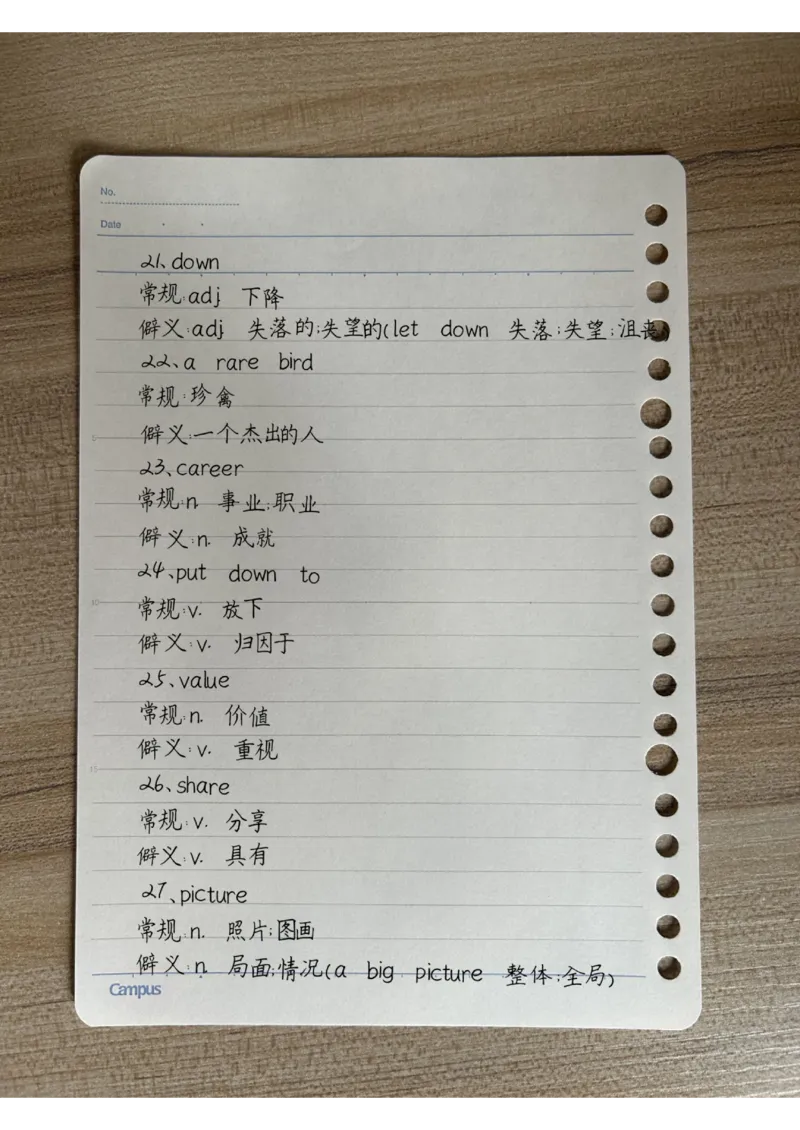 No.
Date
21、down
常规:adj 下降
僻义:adj 失落的;失望的(let down 失落;失望;沮丧)
22、a rare bird
常规:珍禽
5
僻义:一个杰出的人
23、career
常规:n 事业;职业
僻义:n. 成就
24、put down to
10
常规:v. 放下
僻义:v. 归因于
25、value
常规:n. 价值
僻义:v. 重视
15
26、share
常规:v. 分享
僻义:v. 具有
27、picture
常规:n. 照片;图画
僻义:n. 局面;情况(a big picture 整体;全局)
Campus